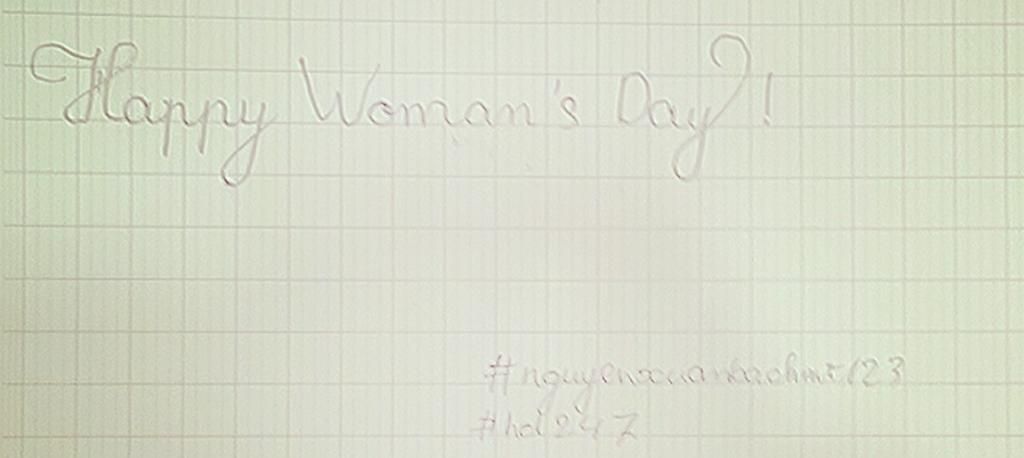 Happy Woman's Day!
#nguyenxuanbachmt123
#hoi247